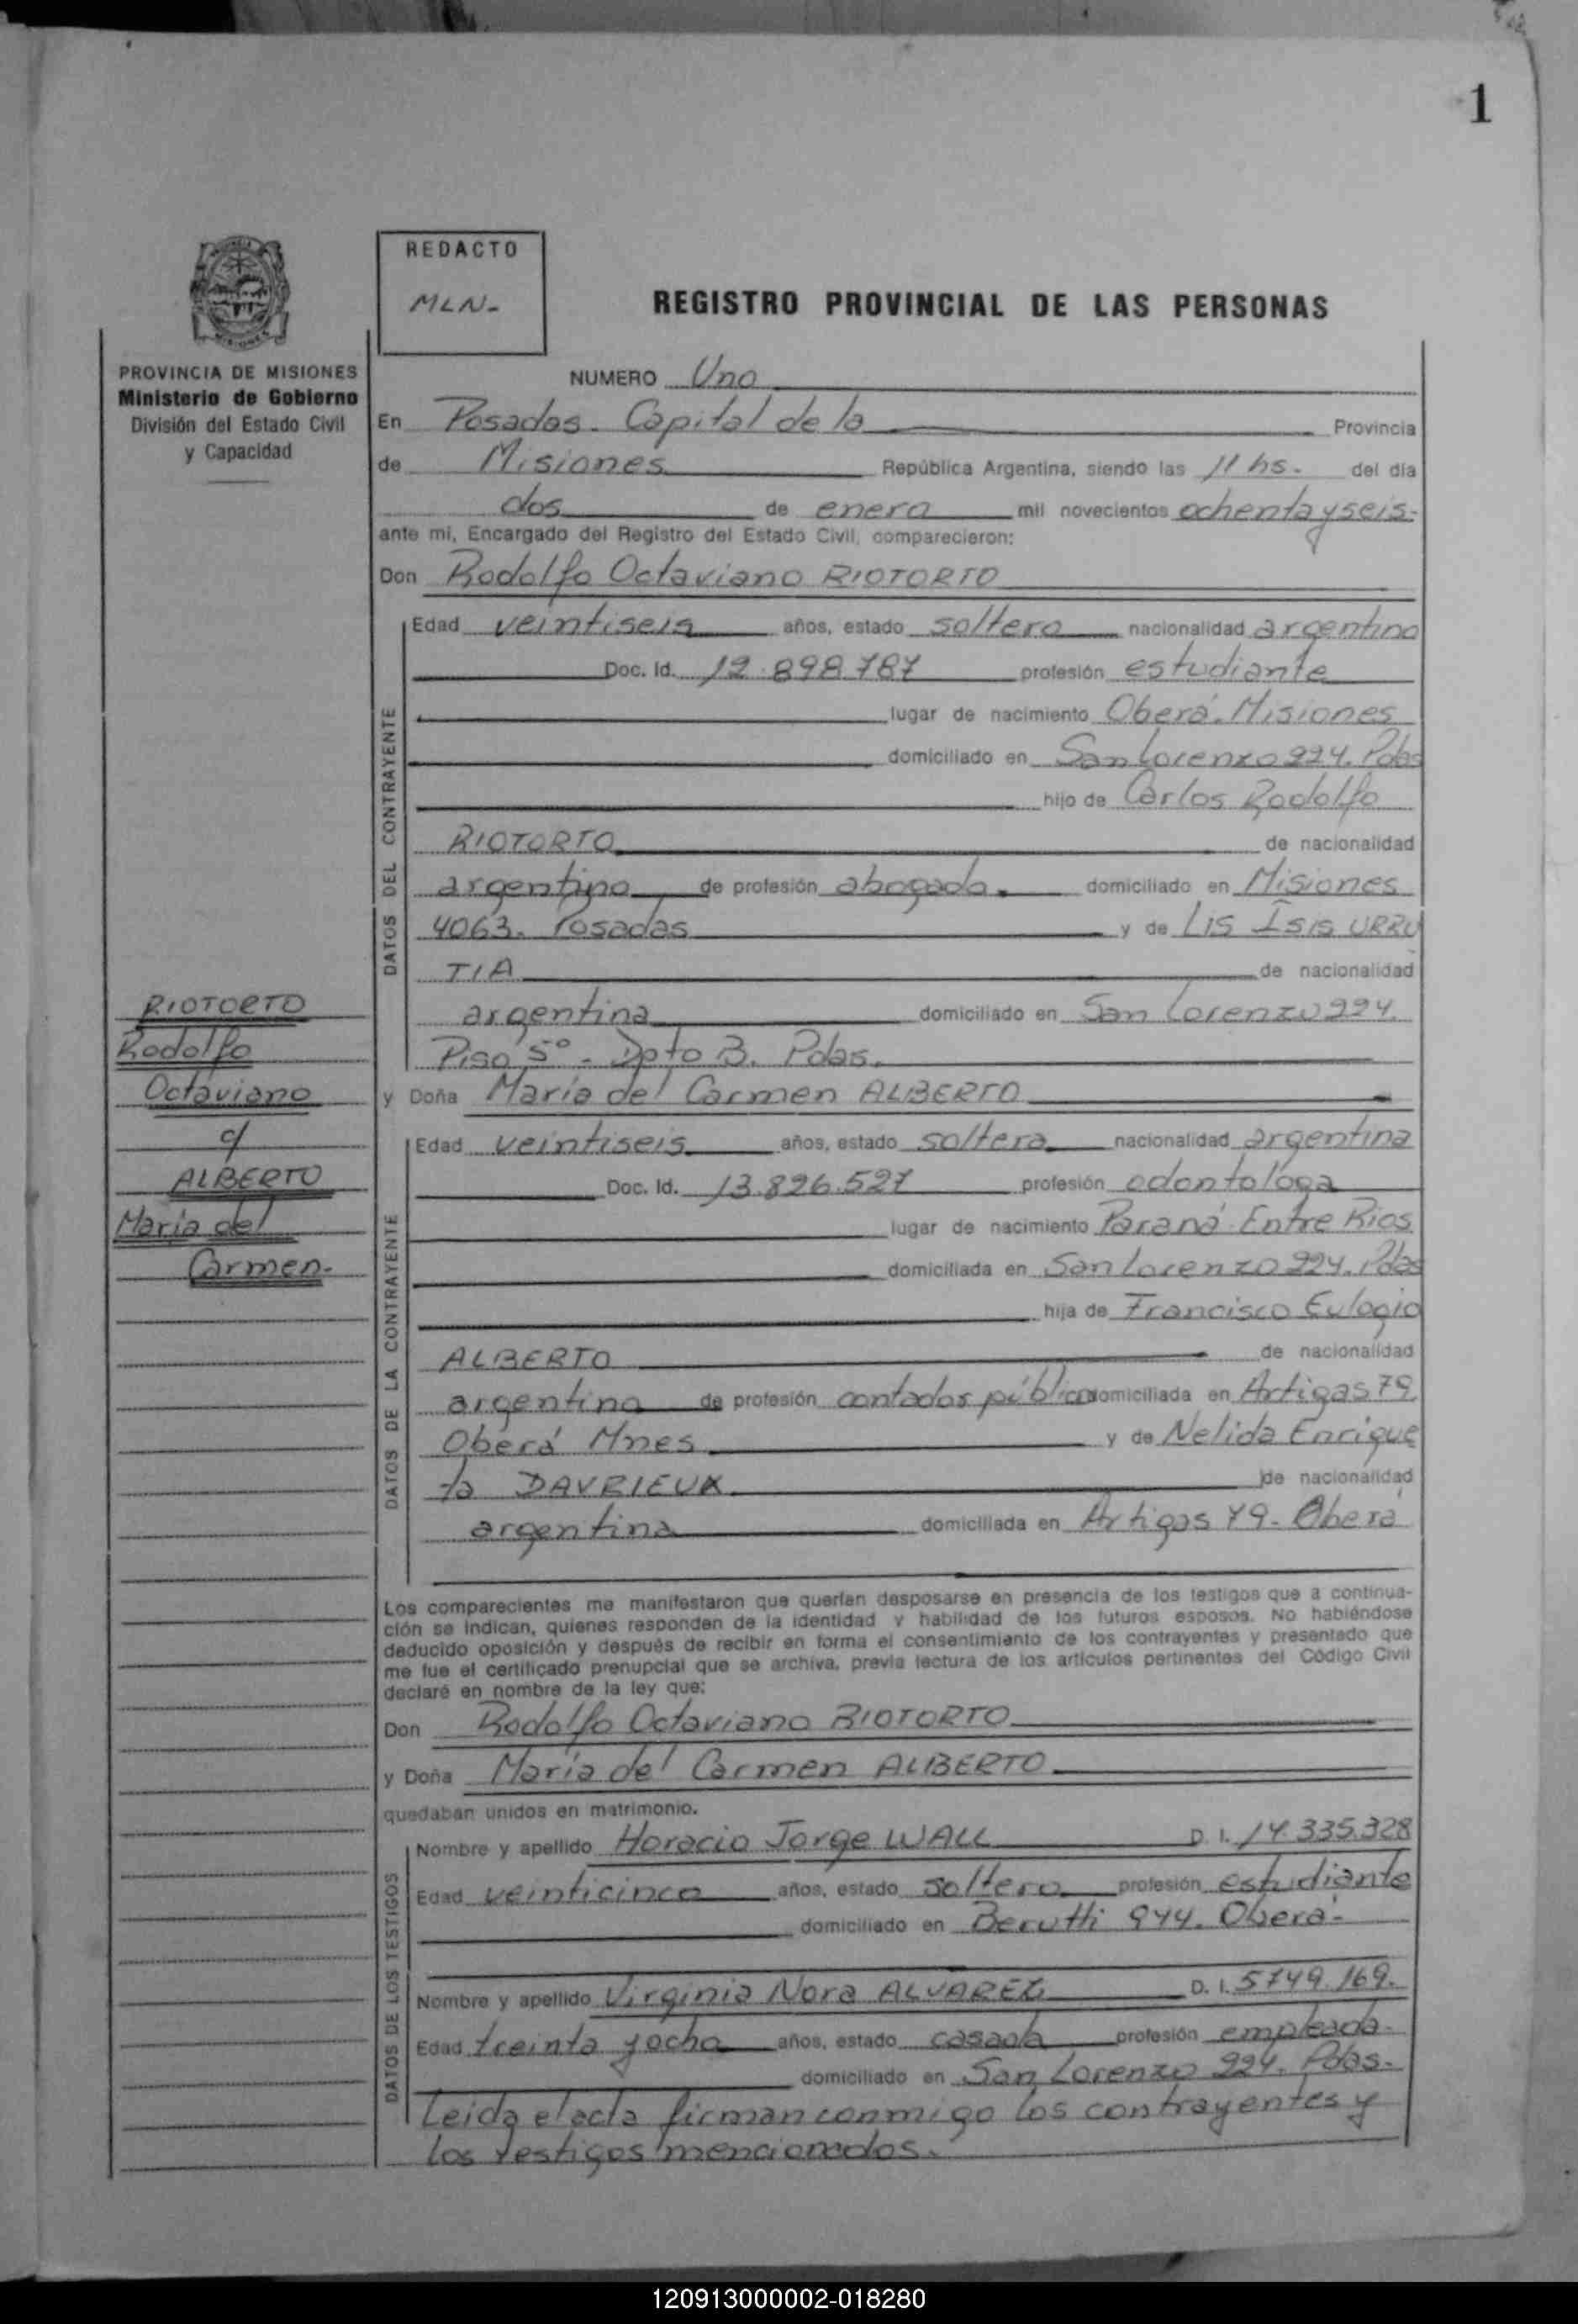 1
REDACTO
MLN-
REGISTRO PROVINCIAL DE LAS PERSONAS
PROVINCIA DE MISIONES
Ministerio de Gobierno
División del Estado Civil
y Capacidad
NUMERO Uno
En Posadas. Capital de la Provincia
de Misiones República Argentina, siendo las 11 hs. del día
dos de enero mil novecientos ochenta y seis-
ante mi, Encargado del Registro del Estado Civil, comparecieron:
Don Rodolfo Octaviano RIOTORTO
DATOS DEL CONTRAYENTE
Edad veintiseis años, estado soltero nacionalidad argentino
Doc. Id. 12.898.787 profesión estudiante
lugar de nacimiento Oberá. Misiones
domiciliado en San Lorenzo 224. Pdas
hijo de Carlos Rodolfo
RIOTORTO de nacionalidad
argentino de profesión abogado. domiciliado en Misiones
4063. Posadas y de Lis Isis URRU
TIA de nacionalidad
argentina domiciliado en San Lorenzo 224.
Piso 5º - Dpto B. Pdas.
RIOTORTO
Rodolfo
Octaviano
c/
ALBERTO
María del
Carmen-
y Doña María del Carmen ALBERTO
DATOS DE LA CONTRAYENTE
Edad veintiseis años, estado soltera nacionalidad argentina
Doc. Id. 13.826.527 profesión odontóloga
lugar de nacimiento Paraná Entre Rios
domiciliada en San Lorenzo 224. Pdas
hija de Francisco Eulogio
ALBERTO de nacionalidad
argentino de profesión contador público domiciliada en Artigas 79.
Oberá Mnes y de Nelida Enrique
ta DAVRIEUX de nacionalidad
argentina domiciliada en Artigas 79- Oberá
Los comparecientes me manifestaron que querían desposarse en presencia de los testigos que a continua-
ción se indican, quienes responden de la identidad y habilidad de los futuros esposos. No habiéndose
deducido oposición y después de recibir en forma el consentimiento de los contrayentes y presentado que
me fue el certificado prenupcial que se archiva, previa lectura de los artículos pertinentes del Código Civil
declaré en nombre de la ley que:
Don Rodolfo Octaviano RIOTORTO
y Doña María del Carmen ALBERTO
quedaban unidos en matrimonio.
DATOS DE LOS TESTIGOS
Nombre y apellido Horacio Jorge WALL D. I. 14.335.328
Edad veinticinco años, estado soltero profesión estudiante
domiciliado en Berutti 944. Oberá-
Nombre y apellido Virginia Nora ALVAREZ D. I. 5749.169.
Edad treinta y ocho años, estado casada profesión empleada-
domiciliado en San Lorenzo 224. Pdas-
Leida el acta firman conmigo los contrayentes y
los testigos mencionados.
120913000002-018280